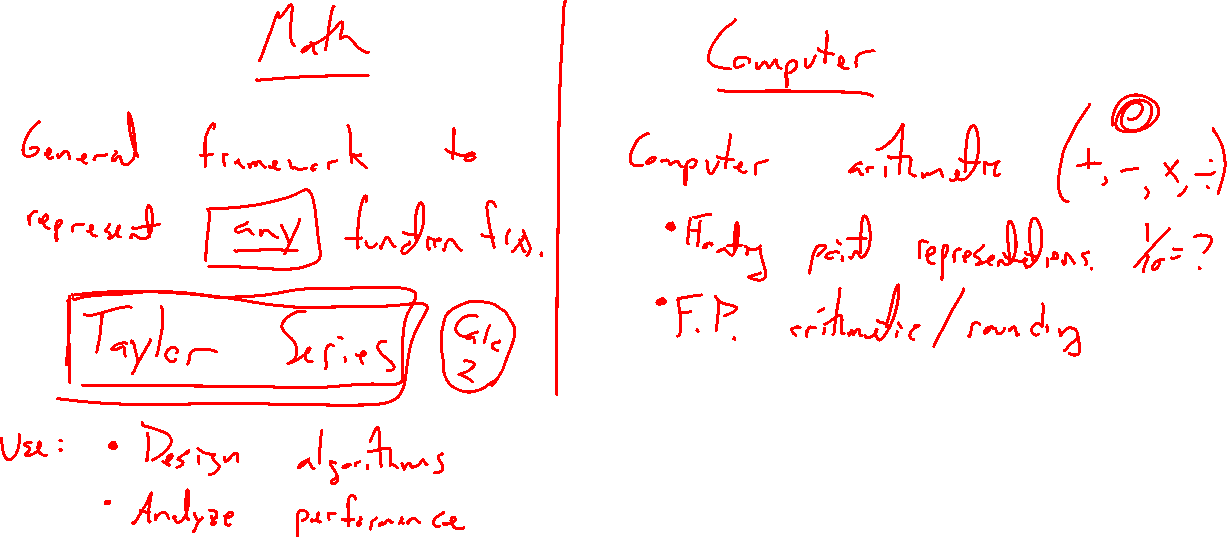 Math
General framework to
represent any function f(x).
Taylor Series
Calc
2
Use: • Design algorithms
• Analyze performance
Computer
Computer arithmetic (+, -, x, ÷)
• Floating point representations. 1/10 = ?
• F.P. arithmetic / rounding